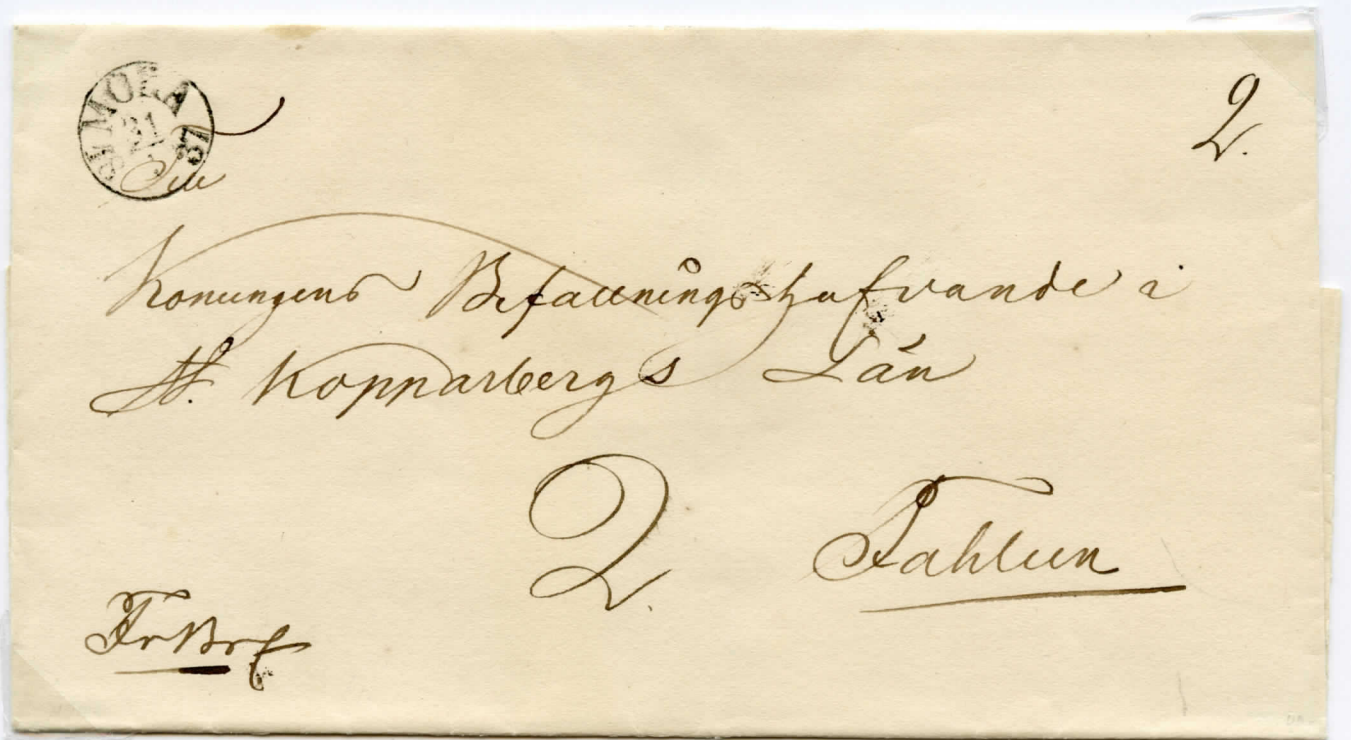 MORA
31
1
18 57
2.
Till
Konungens Befallningshafvande i
St. Kopparbergs Län
2.
Fahlun
FrBref